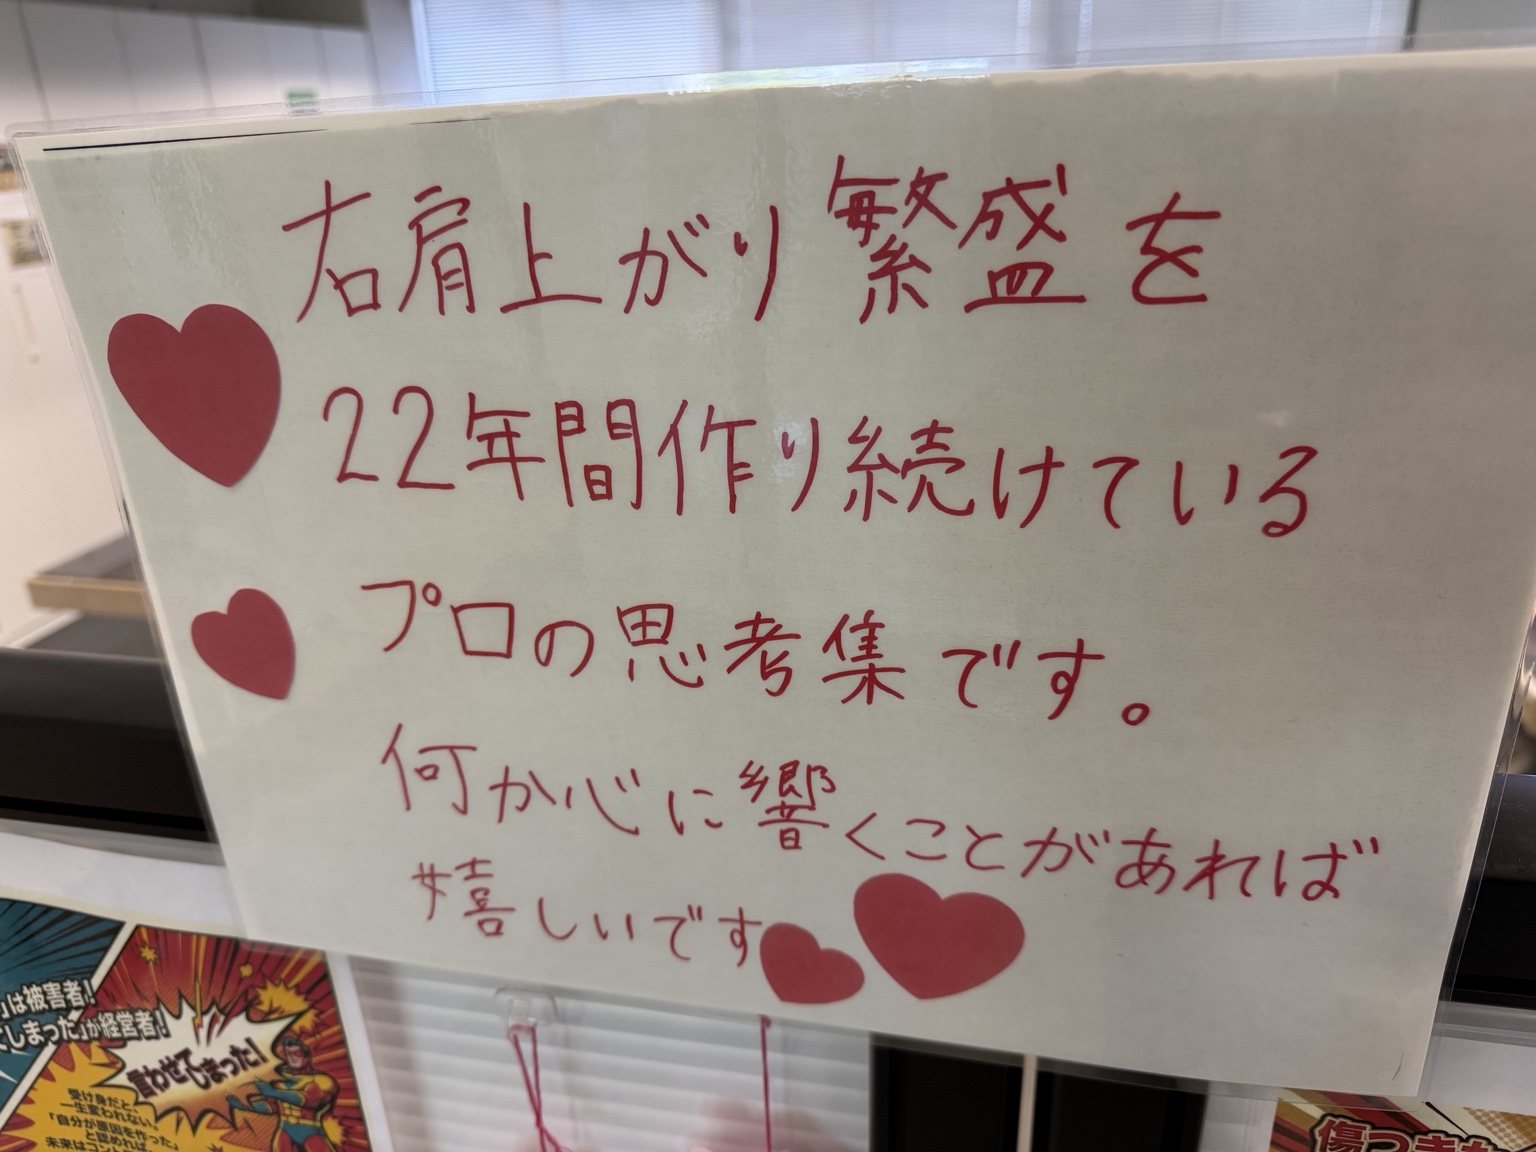 右肩上がり繁盛を
22年間作り続けている
プロの思考集です。
何か心に響くことがあれば
嬉しいです
」は被害者!
てしまった」が経営者!
言わせてしまった!
受け身だと、
一生変われない。
「自分が原因を作った」
と認めれば、